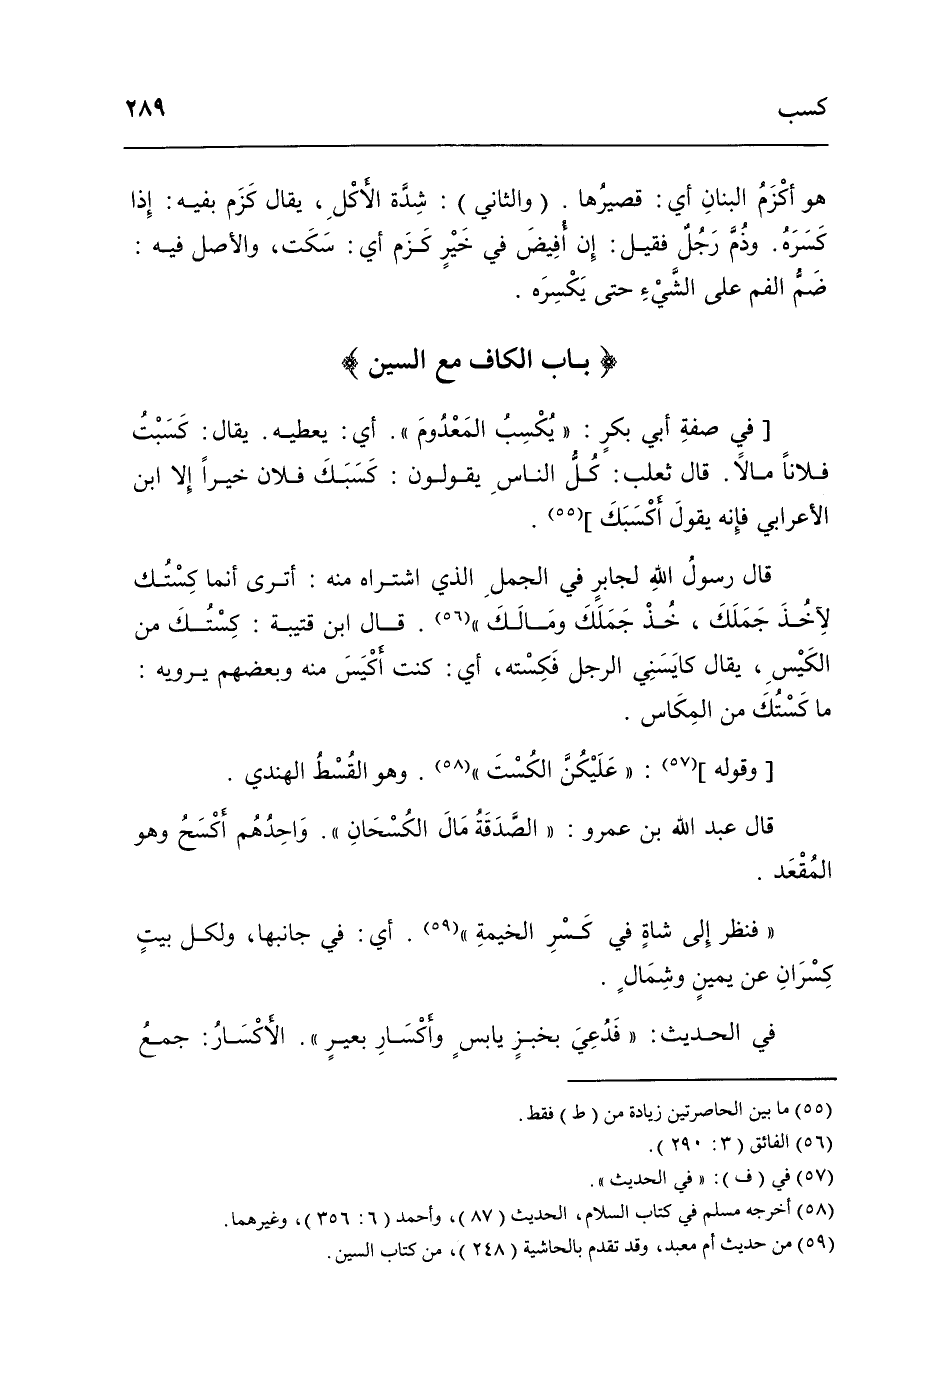 كسب ٢٨٩
هو أكْزَمُ البنانِ أي: قصيرُها . ( والثاني ) : شِدَّة الأَكْلِ ، يقال كَزَم بفيه: إِذا
كَسَرَهُ. وذُمَّ رَجُلٌ فقيل: إن أُفِيضَ في خَيْرٍ كَزَم أي: سَكَت، والأصل فيه :
ضَمُّ الفم على الشَّيْءِ حتى يَكْسِرَه .
﴿ باب الكاف مع السين ﴾
[ في صفةِ أبي بكرٍ : « يُكْسِبُ المَعْدُومَ ». أي: يعطيه. يقال: كَسَبْتُ
فلاناً مالًا. قال ثعلب: كُلُّ الناسِ يقولون : كَسَبَكَ فلان خيراً إلا ابن
الأعرابي فإنه يقولَ أَكْسَبَكَ ](٥٥) .
قال رسولُ اللهِ لجابرٍ في الجملِ الذي اشتراه منه : أترى أنما كِسْتُك
لآخُذَ جَمَلَكَ ، خُذْ جَمَلَكَ ومَالَكَ »(٥٦) . قال ابن قتيبة : كِسْتُكَ من
الكَيْسِ ، يقال كايَسَنِي الرجل فَكِسْته، أي: كنت أَكْيَسَ منه وبعضهم يرويه :
ما كَسْتُكَ من المِكَاس .
[ وقوله ](٥٧) : « عَلَيْكُنَّ الكُسْتَ »(٥٨) . وهو القُسْطُ الهندي .
قال عبد الله بن عمرو : « الصَّدَقَةُ مَالَ الكُسْحَانِ ». وَاحِدُهُم أَكْسَحُ وهو
المُقْعَد .
« فنظر إلى شاةٍ في كَسْرِ الخيمةِ »(٥٩) . أي: في جانبها، ولكل بيتٍ
كِسْرَانِ عن يمينٍ وشِمَالٍ .
في الحديث: « فَدُعِيَ بخبزٍ يابسٍ وأَكْسَارِ بعيرٍ ». الأَكْسَارُ: جمعُ
(٥٥) ما بين الحاصرتين زيادة من ( ط ) فقط.
(٥٦) الفائق ( ٣: ٢٩٠ ).
(٥٧) في ( ف ): « في الحديث ».
(٥٨) أخرجه مسلم في كتاب السلام، الحديث ( ٨٧ )، وأحمد ( ٦: ٣٥٦ )، وغيرهما.
(٥٩) من حديث أم معبد، وقد تقدم بالحاشية ( ٢٤٨ )، من كتاب السين.